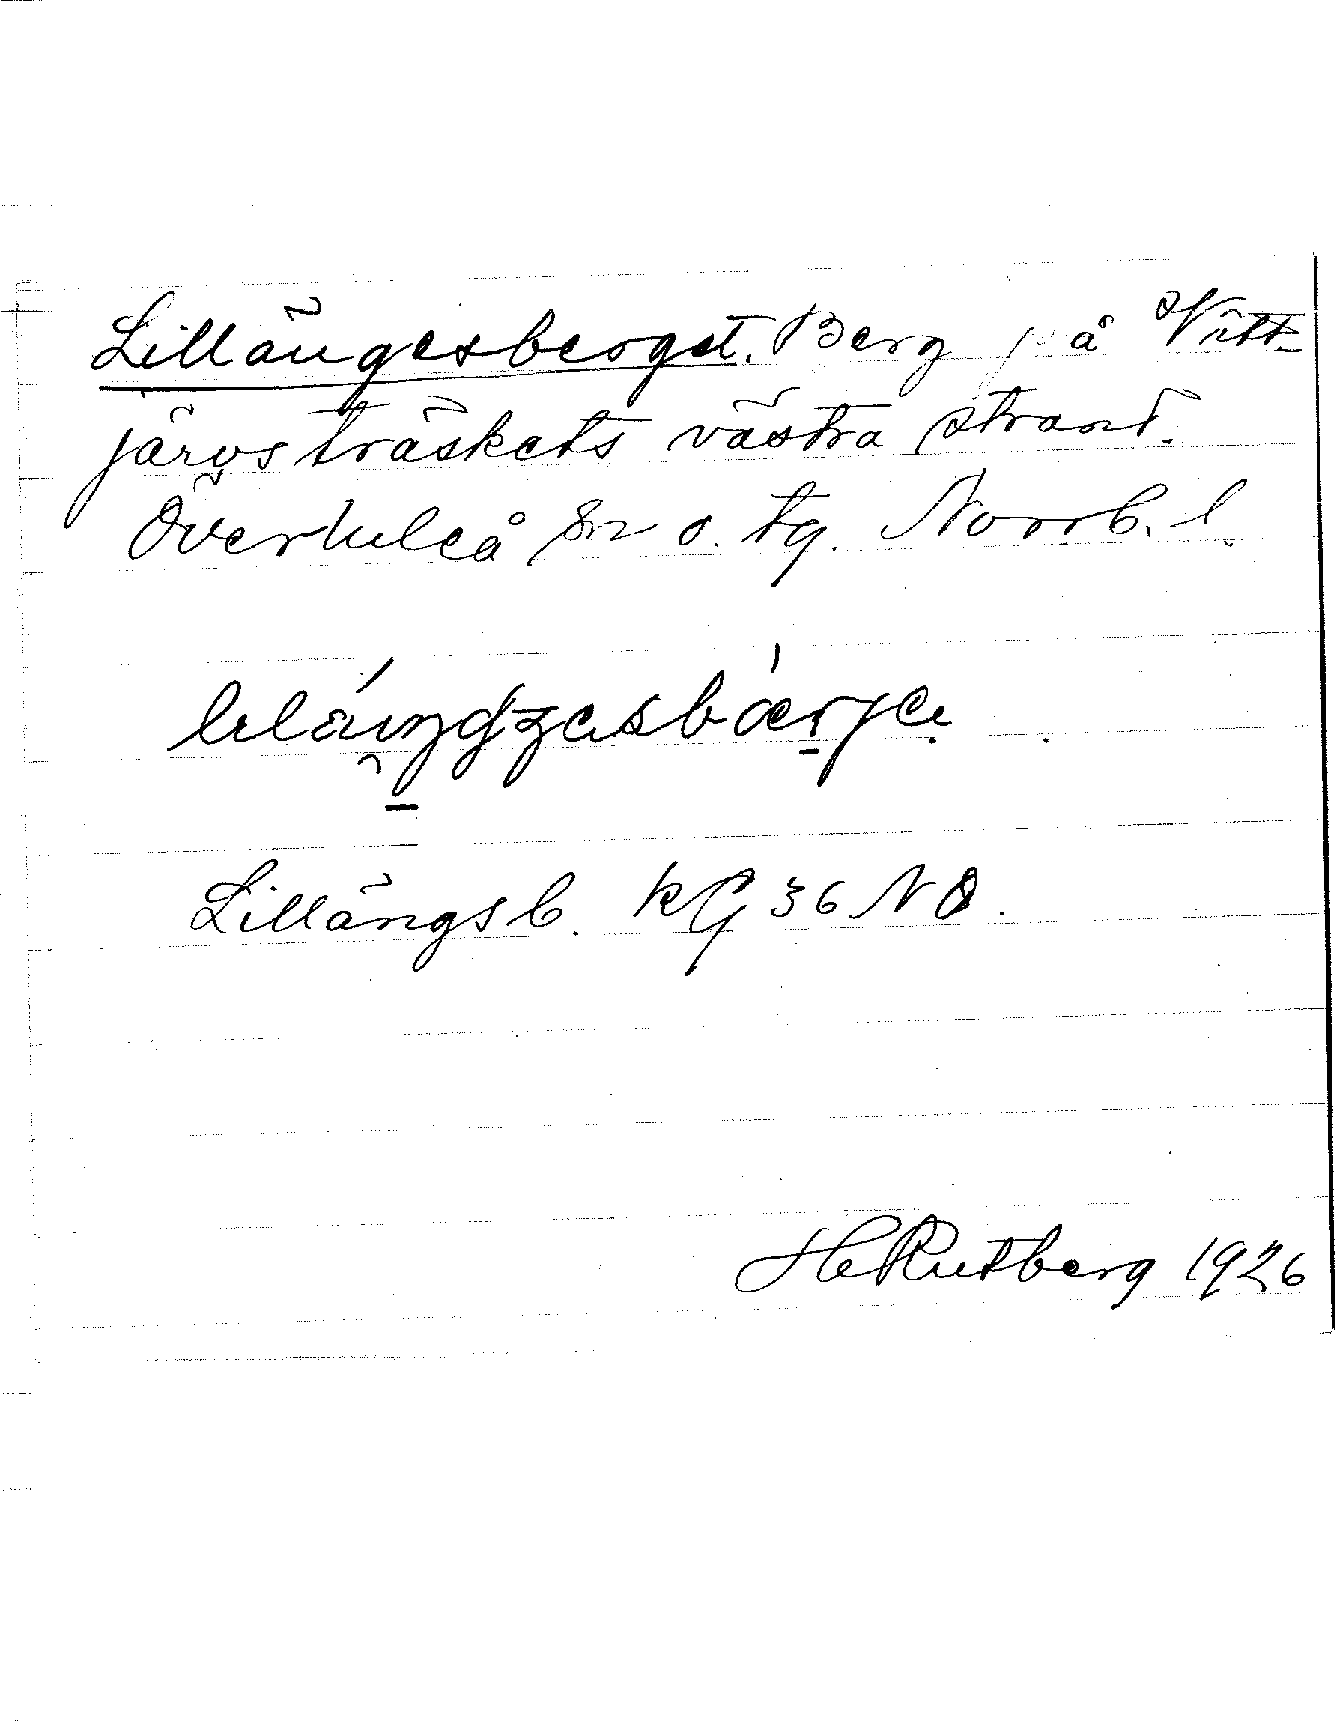 Lillängesberget. Berg på Vitt-
järvsträskets västra strand.
Överluleå sn o. tg. Norrb. l.
Lillängsb. KG 36 NO.
H Rutberg 1926